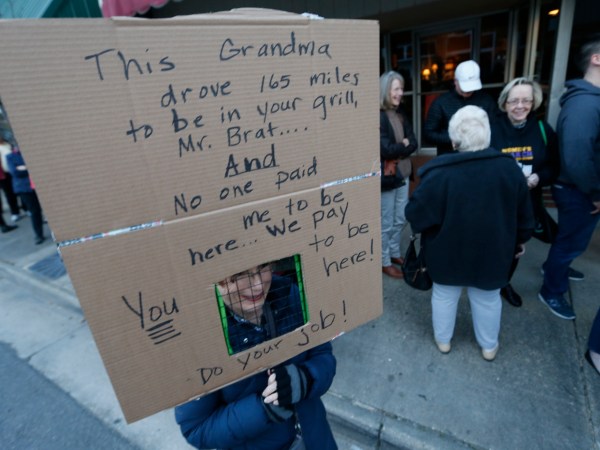 This Grandma
drove 165 miles
to be in your grill,
Mr. Brat....
And
No one paid
me to be
here... We pay
to be
here!
You
Do your job!